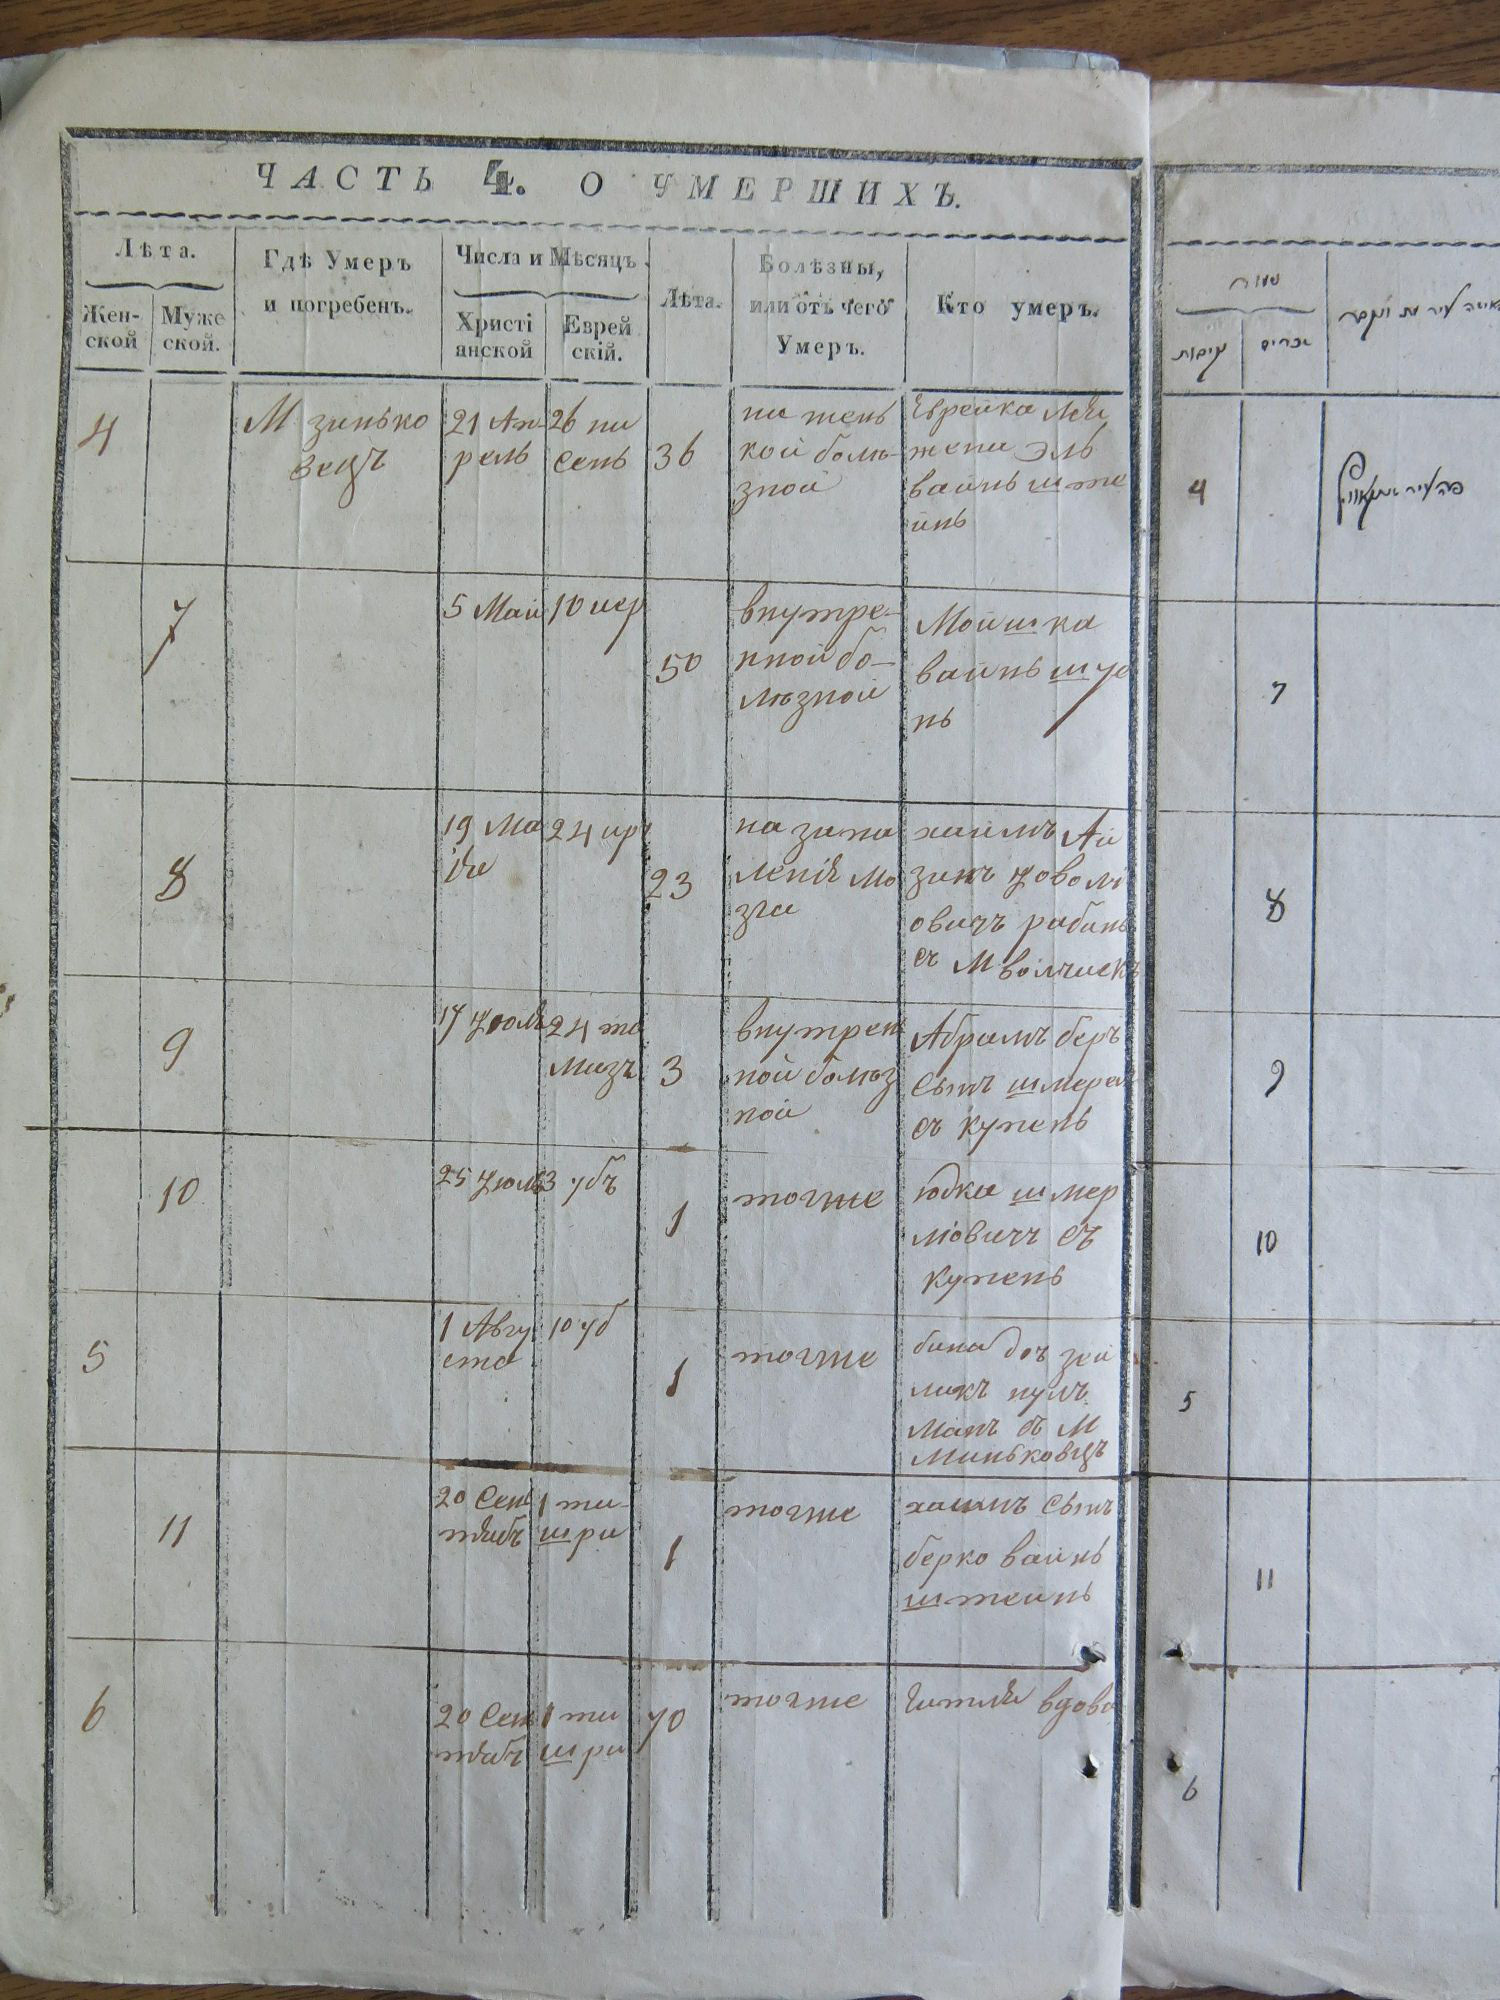 ЧАСТЬ 4. О УМЕРШИХЪ.
Лѣта.
Жен-
ской
Муже
ской.
Гдѣ Умеръ
и погребенъ.
Числа и Мѣсяцъ.
Христі
анской
Еврей
скій.
Лѣта.
Болѣзны,
или отъ чего
Умеръ.
Кто умеръ.
4
М зинько
вецъ
21 Ап-
рель
26 ни
сень
36
кой болѣ-
зной
Еврейка
жена Эль
вайнь ште
йнь
7
5 Май
10 иер
50
внутре-
нной бо-
лѣзной
Мойшка
вайнь
нь
8
19 Ма
24 иръ
23
мо
зга
хаимъ Ай
зикъ
овичъ рабинь
съ М волчискъ
9
17 Июль
24 та
музъ
3
внутрен
ной болѣз
ной
Абрамъ беръ
сынъ
съ купень
10
25 Июль
3 убъ
1
тогже
юдка шмер
ловичъ съ
купень
5
1 Авгу
ста
10 уб
1
тогже
бина доч зей
ликъ пулъ
манъ съ М
миньковцъ
11
20 Сен
тябъ
1 ти-
шри
1
тогже
хаимъ сынъ
берко вайнь
штейнь
6
20 Сен
тябъ
1 ти
шри
70
тогже
вдова
שנים
נקיבות
זכרים
4
7
8
9
10
5
11
6